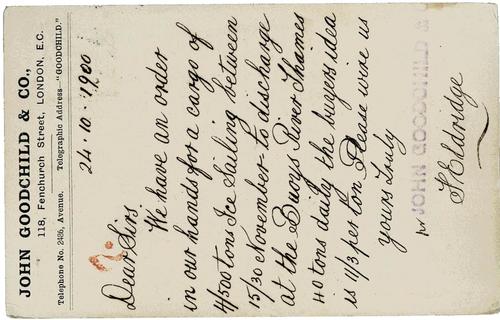 JOHN GOODCHILD & CO.,
118, Fenchurch Street, LONDON, E.C.
Telephone No. 2426, Avenue. Telegraphic Address—"GOODCHILD."
24.10.1900
Dear Sirs
We have an order
in our hands for a cargo of
4/500 tons Ice Sailing between
15/30 November to discharge
at the Buoys River Thames
40 tons daily the buyers idea
is 11/3 per ton Please wire us
yours truly
JOHN GOODCHILD &
Eldridge